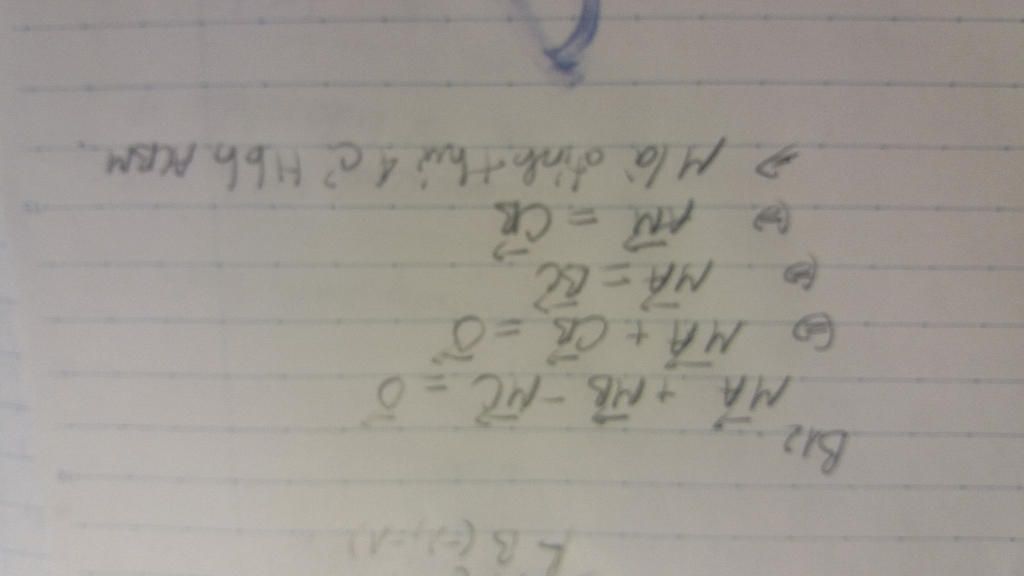 B(-2;-1)
B12
MA + MB - MC = 0
⇔ MA + CB = 0
⇔ MA = BC
⇔ AM = CB
⇒ M là đỉnh thứ 4 c̉ Hbh ACBM